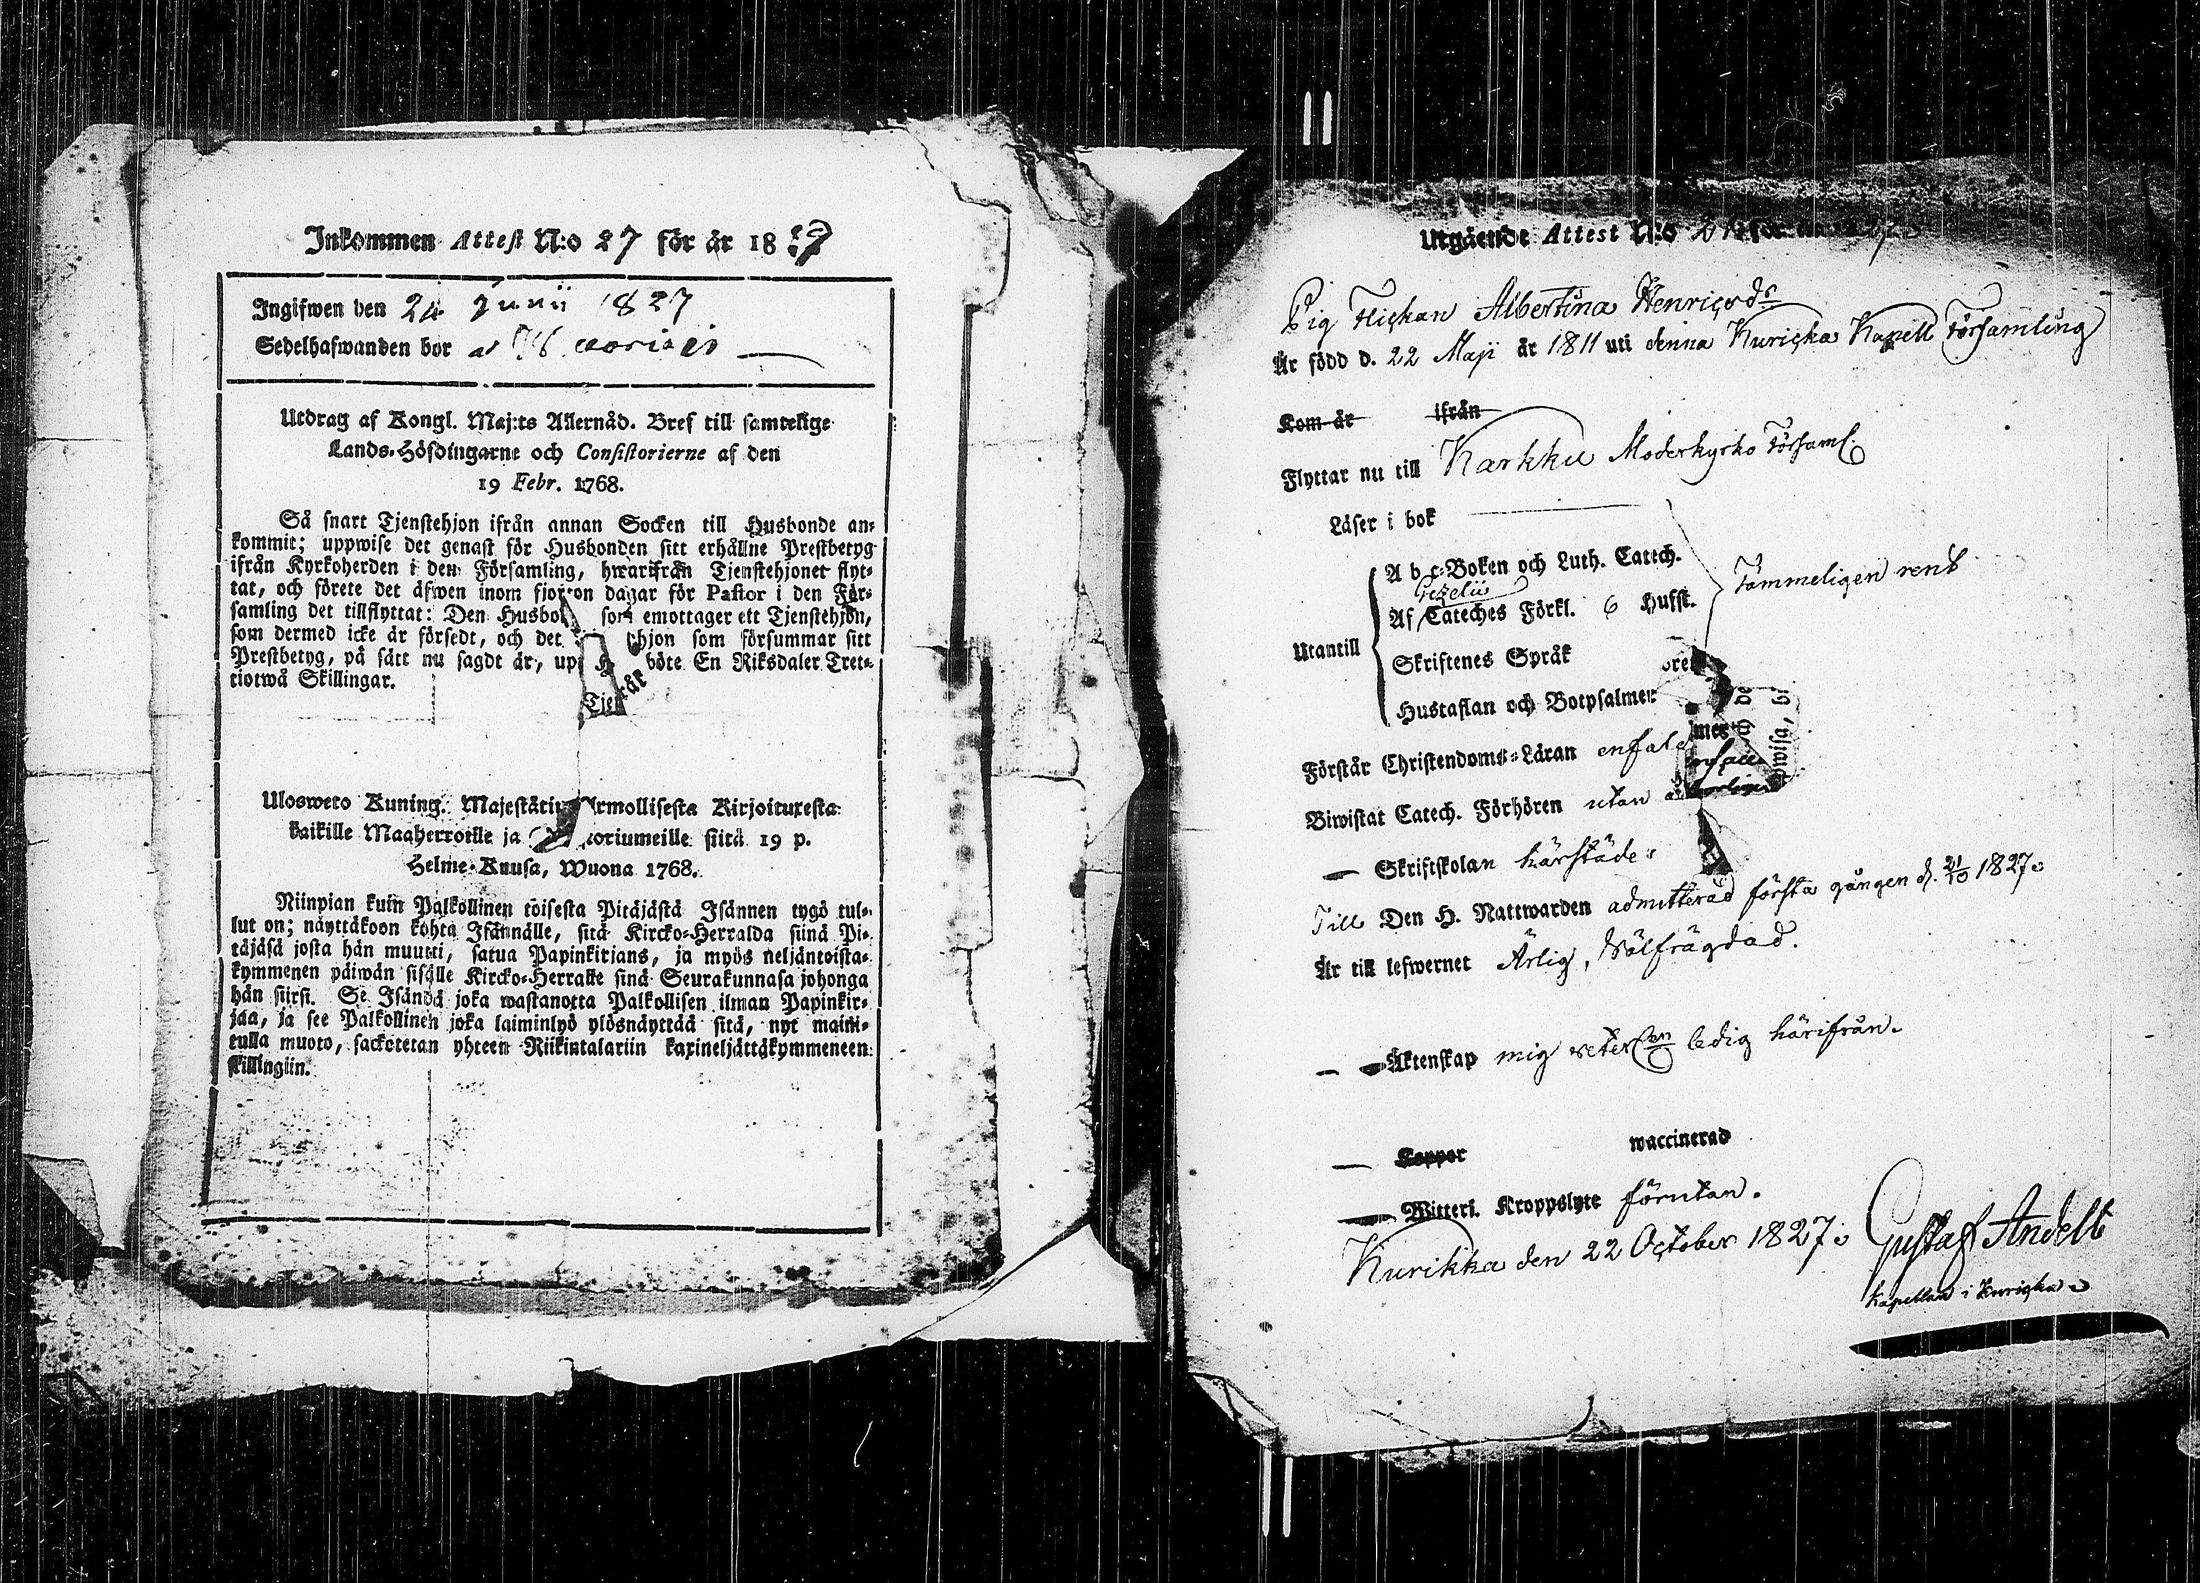 Inkommen Attest N:o 27 för år 1827
Ingifwen den 24 Junii 1827
Sedelhafwanden bor
Utdrag af Kongl. Maj:ts Allernåd. Bref till samtelige
Lands-Höfdingarne och Consistorierne af den
19 Febr. 1768.
Så snart Tjenstehjon ifrån annan Socken till Husbonde an-
kommit; uppwise det genast för Husbonden sitt erhållne Prestbetyg
ifrån Kyrkoherden i den Församling, hwarifrån Tjenstehjonet flyt-
tat, och förete det äfwen inom fjorton dagar för Pastor i den För-
samling det tillflyttat: Den Husbo som emottager ett Tjenstehjon,
som dermed icke är försedt, och det hjon som försummar sitt
Prestbetyg, på sätt nu sagdt är, up böte En Riksdaler Tret-
tiotwå Skillingar.
Tjen
Ulosweto Kuning. Majestätin Armollisesta Kirjoituxesta
kaikille Maaherroille ja toriumeille siitä 19 p.
Helme-Kuusa, Wuona 1768.
Niinpian kuin Palkollinen toisesta Pitäjästä Isännen tygö tul-
lut on; näyttäkoon kohta Isännälle, sitä Kircko-Herralda siinä Pi-
täjäsä josta hän muutti, saatua Papinkirjans, ja myös neljäntoista-
kymmenen päiwän sisälle Kircko-Herralle sinä Seurakunnasa johonga
hän siirsi. Se Isändä joka wastanotta Palkollisen ilman Papinkir-
jaa, ja see Palkollinen joka laiminlyö ylösnäyttää sitä, nyt maini-
tulla muoto, sackotetan yhteen Riikintalariin kaxineljättäkymmeneen
skillingiin.
Utgående Attest N:o
Pig Flickan Albertina Henricsdr
Är född d. 22 Maji år 1811 uti denna Kuricka Kapell Församling
Kom år ifrån
Flyttar nu till Karkku Moderkyrko Församl.
Läser i bok
A b c-Boken och Luth. Catech.
Gezelii
Af Cateches Förkl. 6 Hufst.
Tämmeligen rent
Utantill
Skriftenes Språk
Hustaflan och Botpsalmer
Förstår Christendoms-Läran enfal
Biwistat Catech. Förhören utan
— Skriftskolan härstädes
Till Den H. Nattwarden admitterad första gången d. 21/10 1827.
Är till lefwernet Ärlig, Wälfrägdad.
— Äktenskap mig veterl.en ledig härifrån.
— Koppor waccinerad
— Witterl. Kroppslyte förutan.
Kurikka den 22 October 1827. Gustaf Andell
Kapellan i Kuricka